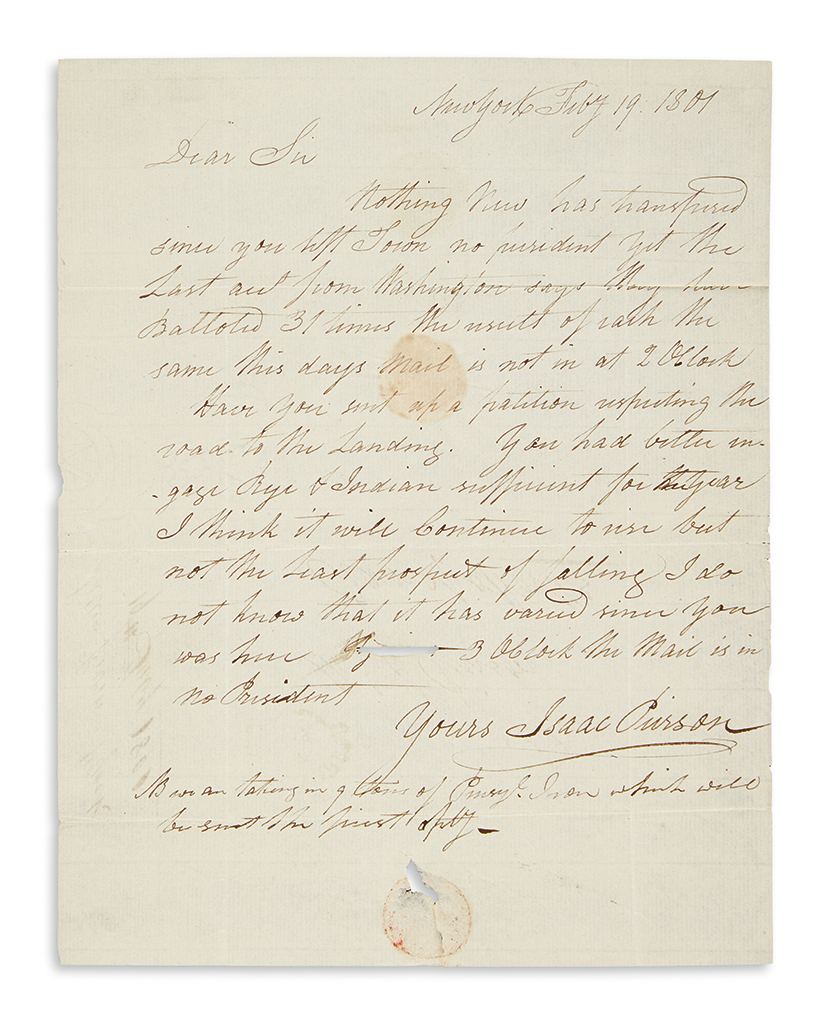 New York Feby 19. 1801
Dear Sir
Nothing New has transpired
since you left Town no president yet the
Last acct from Washington says they have
Balloted 31 times the results of each the
same this days Mail is not in at 2 OClock
Have you sent up a patition respecting the
road to the Landing. You had better in-
-gage Rye & Indian sufficient for the year
I think it will Continue to rise but
not the Least prospect of falling I do
not know that it has varied since you
was here 3 OClock the Mail is in
no President
Yours Isaac Pierson
NB we are taking in 9 tons of Iron which will
be sent the first opty